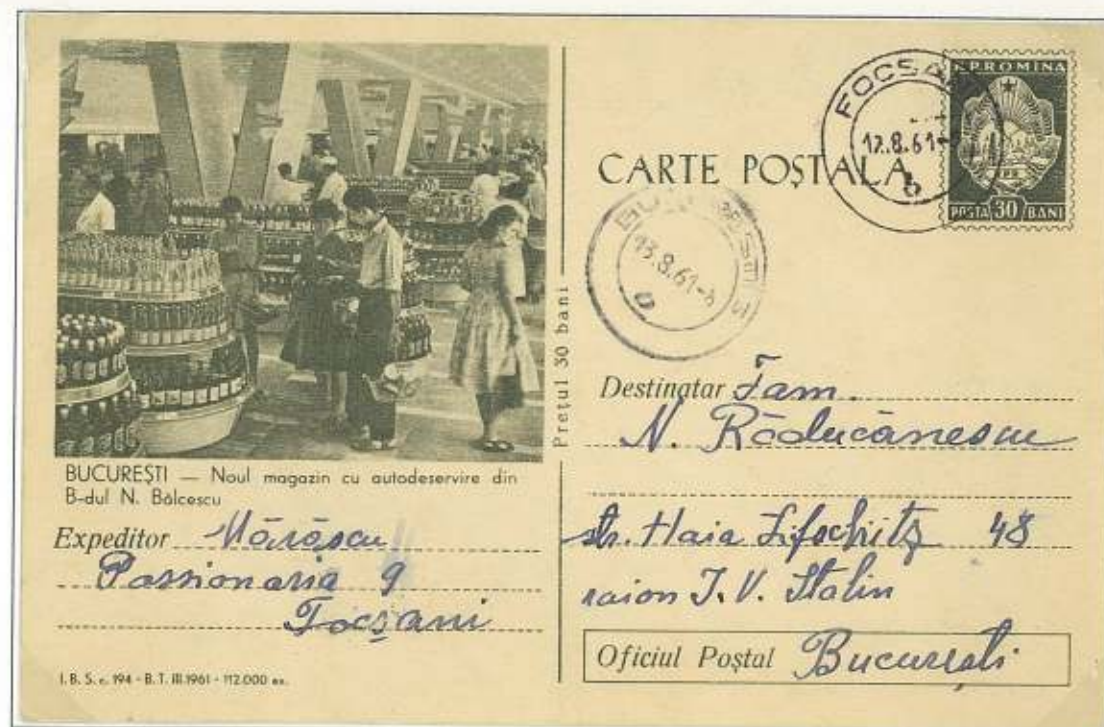 BUCUREȘTI — Noul magazin cu autodeservire din
B-dul N. Bălcescu
Expeditor Mărășcu
Passionaria 9
Focșani
I. B. S. c. 194 - B. T. III.1961 - 112.000 ex.
Prețul 30 bani
CARTE POȘTALA
R.P.ROMINA
POSTA 30 BANI
FOCSANI
12.8.61
b
BUCURESTI
13.8.61-8
Destinatar Fam.
N. Răducănescu
str. Haia Lifschitz 48
raion I. V. Stalin
Oficiul Poștal București